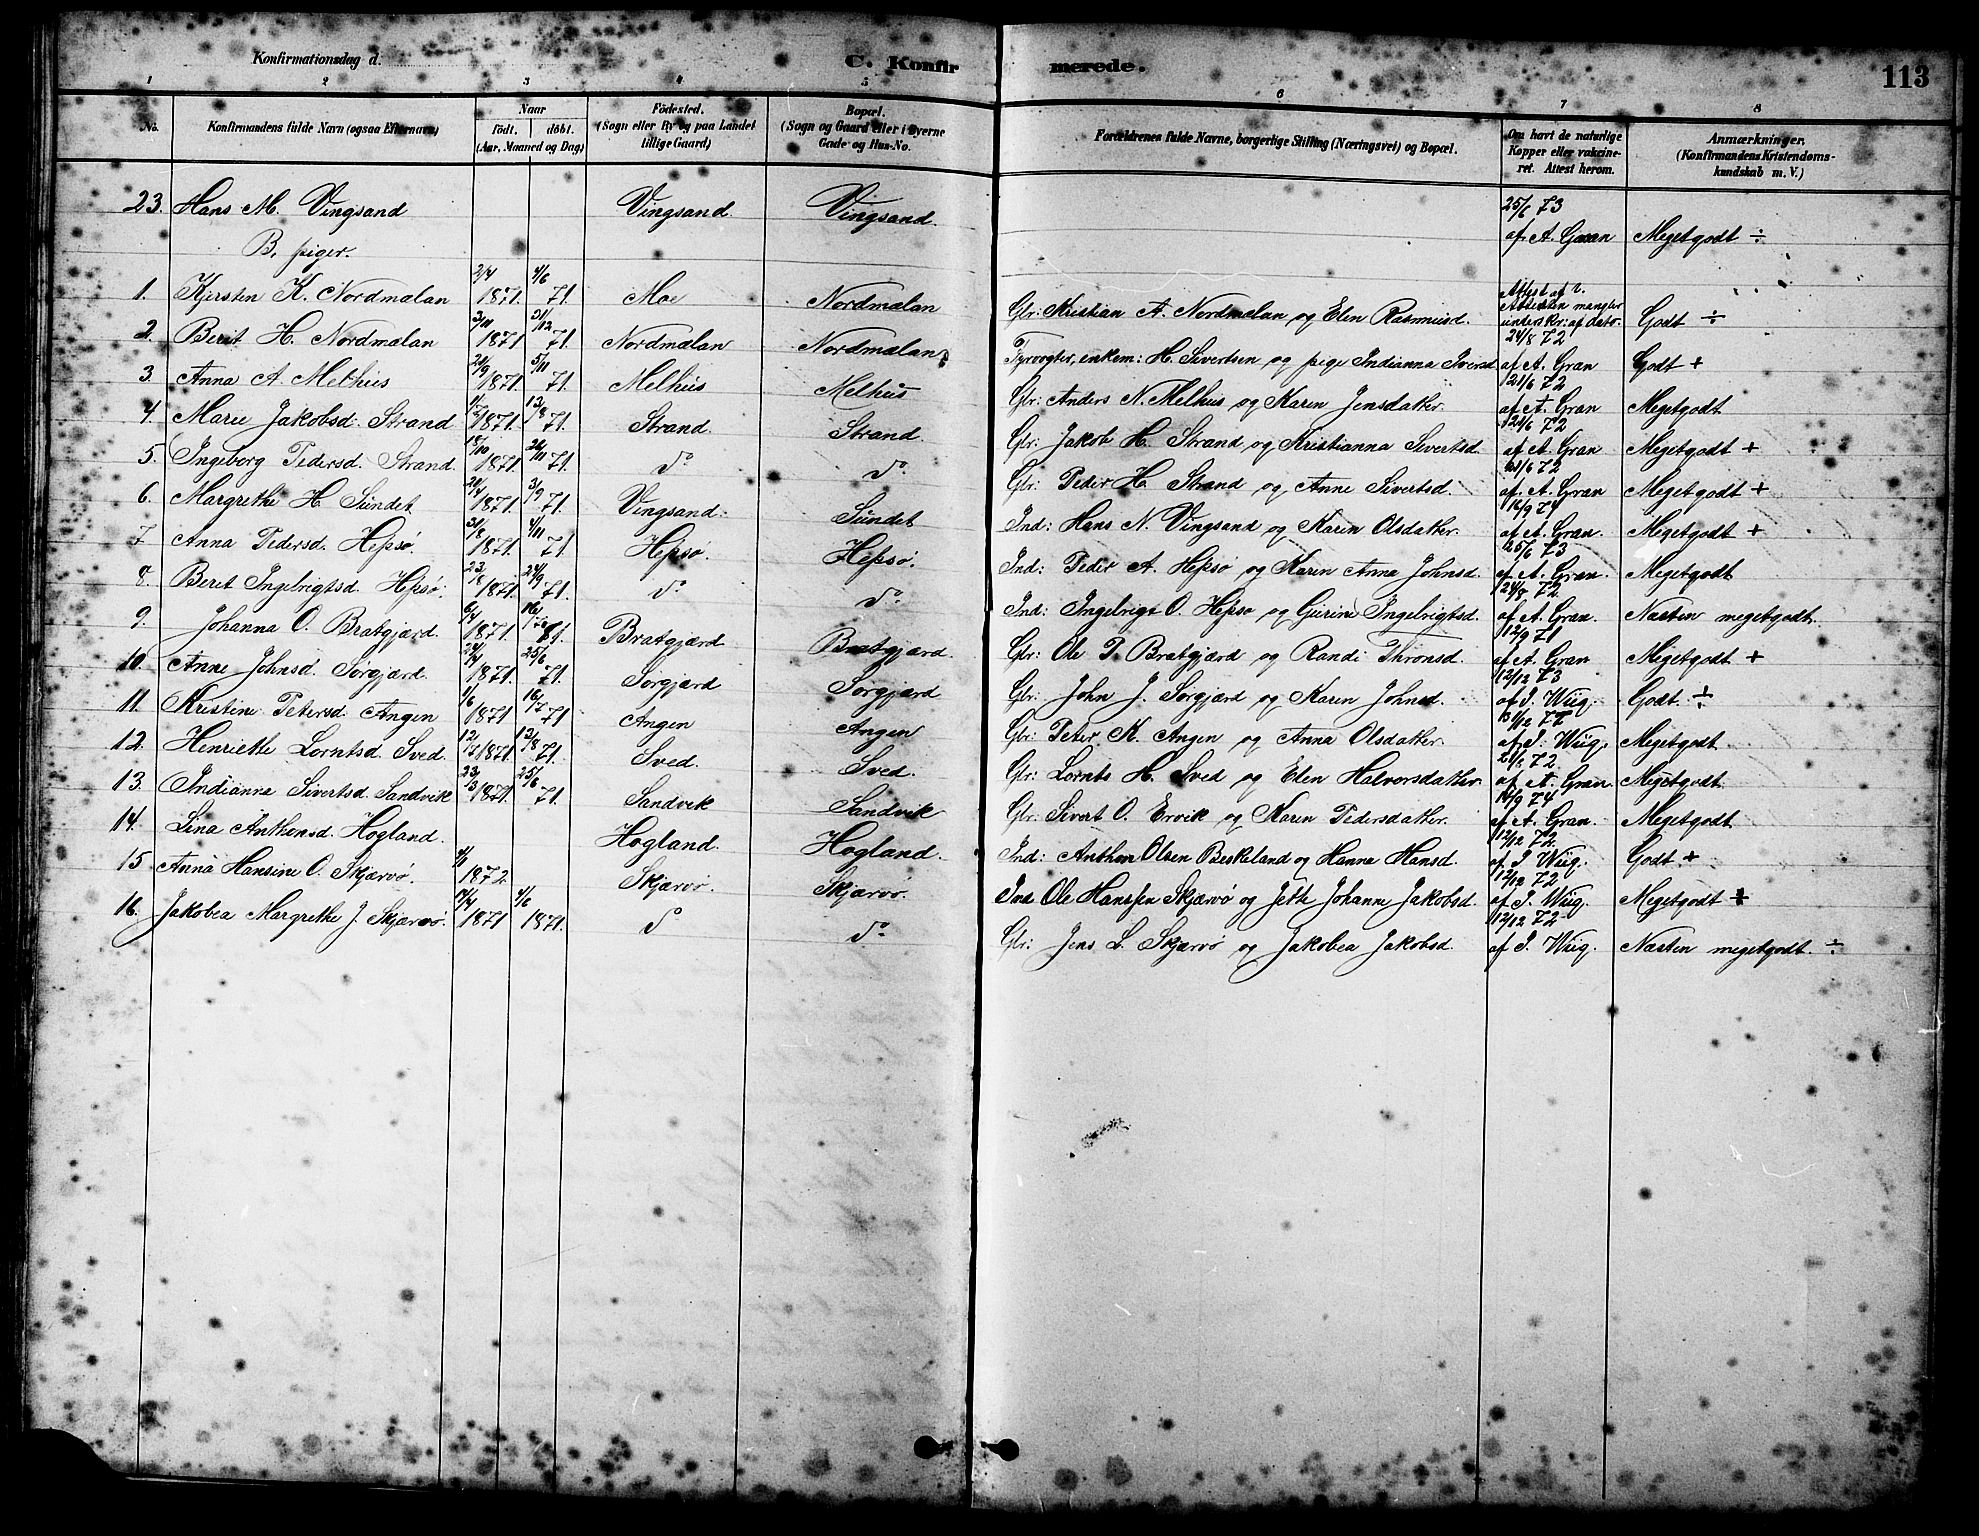 Konfirmationsdag d. C. Konfirmerede. 113
1 2 3 4 5 6 7 8
No. Konfirmandens fulde Navn (ogsaa Efternavn) Naar födt. döbt. (Aar, Maaned og Dag) Födested. (Sogn eller By og paa Landet tillige Gaard) Bopæl. (Sogn og Gaard eller i Byerne Gade og Hus-No. Forældrenes fulde Navne, borgerlige Stilling (Næringsvei) og Bopæl. Om havt de naturlige Kopper eller vakcineret. Attest herom. Anmærkninger. (Konfirmandens Kristendomskundskab m. V.)
23. Hans M. Vingsand Vingsand Vingsand. 25/6 73 af A. Gran Megetgodt ÷
B, piger.
1. Kjersten K. Nordmelan 2/4 1871. 4/6 71. Moe Nordmelan Gbr: Kristian A. Nordmelan og Elen Rasmusd. Attesten mangler underskr: af dato. Godt ÷
2. Berit H. Nordmelan 1871 71. Nordmelan Nordmelan Fyrvogter, enkem: H. Sivertsen og pige Indianna Iversd 24/8 72 af A. Gran Godt +
3. Anna A. Melhus 1871. 5/11 71. Melhus Melhus Gbr: Anders N. Melhus og Karen Jensdatter. 21/6 72 af A. Gran Megetgodt
4. Marie Jakobsd. Strand 1871. 13/8 71. Strand. Strand. Gbr: Jakob H. Strand og Kristianna Sivertsd. af A. Gran Megetgodt +
5. Ingeborg Pedersd. Strand 15/10 1871. 71. do do Gbr: Peder H. Strand og Anne Sivertsd. 72 af A. Gran Megetgodt +
6. Margrethe H. Sundet 1871. 3/9 71. Vingsand. Sundet Ind: Hans N. Vingsand og Karen Olsdatter. 16/9 74 af A. Gran. Megetgodt +
7 Anna Pedersd. Hepsø. 31/8 1871. 4/11 71. Hepsø. Hepsø. Ind: Peder A. Hepsø og Karen Anna Johnsd. 25/6 73 af A. Gran. Megetgodt
8. Beret Ingebrigtsd. Hepsø. 1871. 24/9 71. do do Ind: Ingebrigt O. Hepsø og Gurine Ingebrigtsd. 24/8 72 af A. Gran. Næsten megetgodt.
9. Johanna O. Bratgjærd. 6/4 1871. Bratgjærd Bratgjærd. Gbr: Ole P. Bratgjærd og Randi Thronsd. 12/9 71 af A. Gran Megetgodt +
10. Anne Johnsd. Sørgjærd. 1871. 25/6 71. Sorgjærd Sorgjærd Gbr: John J. Sorgjærd og Karen Johnsd. 12/12 73 af I. Wiig. Godt ÷
11. Kristine Petersd. Angen 1/6 1871 16/7 71. Angen Angen Gbr: Peter K. Angen og Anna Olsdatter. af I. Wiig. Megetgodt
12. Henriette Lorntsd. Sved. 1871. 13/8 71. Sved. Sved. Gbr: Lornts H. Sved og Elen Halvorsdatter. 72 af A. Gran. Megetgodt.
13. Indianna Sivertsd. Sandvik 23/3 1871. 25/6 71. Sandvik Sandvik Gbr: Sivert O. Ervik og Karen Pedersdatter. 16/9 74 af A. Gran. Megetgodt
14. Lina Anthonsd. Hogland. Hogland. Hogland. Ind: Anthon Olsen Beskeland og Hanna Hansd. 12/12 72 af I. Wiig. Godt +
15 Anna Hansine O. Skjærvø. 1872. Skjærvø. Skjærvø. Ind Ole Hanssen Skjærvø og Jette Johanne Jakobsd. 12/12 72 af I. Wiig. Megetgodt +
16. Jakobea Margrethe J. Skjærvø. 1871 4/6 1871. do do Gbr: Jens L. Skjærvø og Jakobea Jakobsd. 12/12 72 af I. Wiig. Næsten megetgodt. ÷